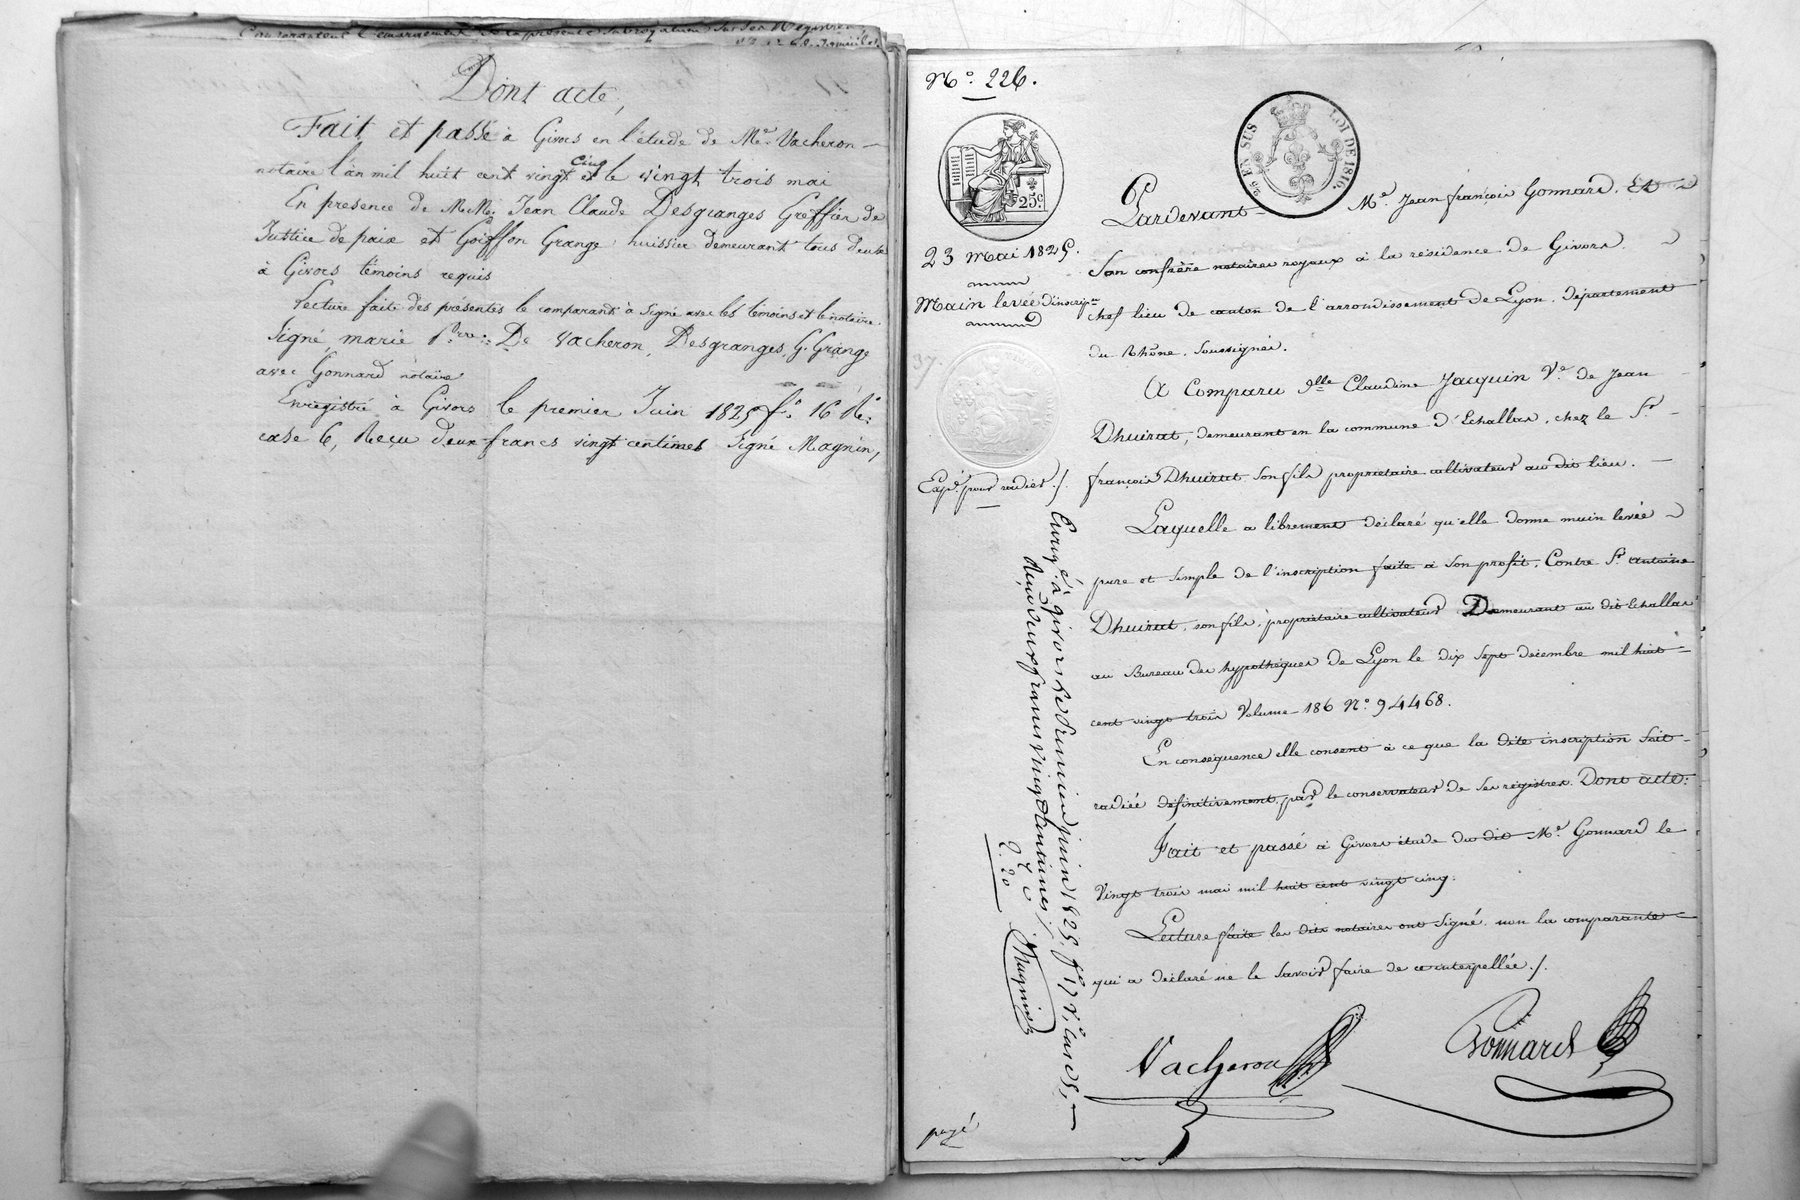 l'émargement de la présente subrogation sur ses Registres
Dont acte,
Fait et passé à Givors en l'étude de Me. Vacheron
notaire l'an mil huit cent vingt cinq et le vingt trois mai
En presence de M.M. Jean Claude Desgranges Greffier de
Justice de paix et Goiffon Grange huissier demeurant tous deux
à Givors témoins requis
Lecture faite des présentes le comparant à signé avec les témoins et le notaire.
Signé marie De Vacheron, Desgranges, G. Grange
avec Gonnard notaire
Enregistré à Givors le premier Juin 1825 fo. 16 Ro.
case 6, Reçu deux francs vingt centimes Signé Magnin,
No. 226.
25 EN SUS LOI DE 1816.
25c.
23 Mai 1825.
Main levée d'inscripon
37.
Expé. pour radier ./.
Pardevant Me. Jean françois Gonnard, Et
Son confrère notaires royaux à la résidence de Givors.
chef lieu de canton de l'arrondissement de Lyon, département
du Rhône, soussignés.
A Comparu Dlle Claudine Jacquin Ve. de Jean
Dhuirat, demeurant en la commune d'Echallas, chez le Sr
françois Dhuirat son fils propriétaire cultivateur au dit lieu.
Laquelle a librement déclaré qu'elle donne main levée
pure et simple de l'inscription faite à son profit, Contre Sr antoine
Dhuirat, son fils, propriétaire cultivateur Demeurant au dit Echallas
au Bureau des hypothéques de Lyon le dix sept décembre mil huit
cent vingt trois Volume 186 No. 94468.
En conséquence elle consent à ce que la dite inscription soit
radiée définitivement par le conservateur de ses registres. Dont acte:
Fait et passé à Givors étude du dit Me. Gonnard le
Vingt trois mai mil huit cent vingt cinq.
Lecture faite les dits notaires ont signé non la comparante
qui a déclaré ne le savoir faire de ce interpellée ./.
Enregé. à givors le premier juin 1825, fo 17 Vo. Case 5,
Reçu deux francs vingt centimes ./.
2.20
Magnin
Vacheron
Gonnard
payé